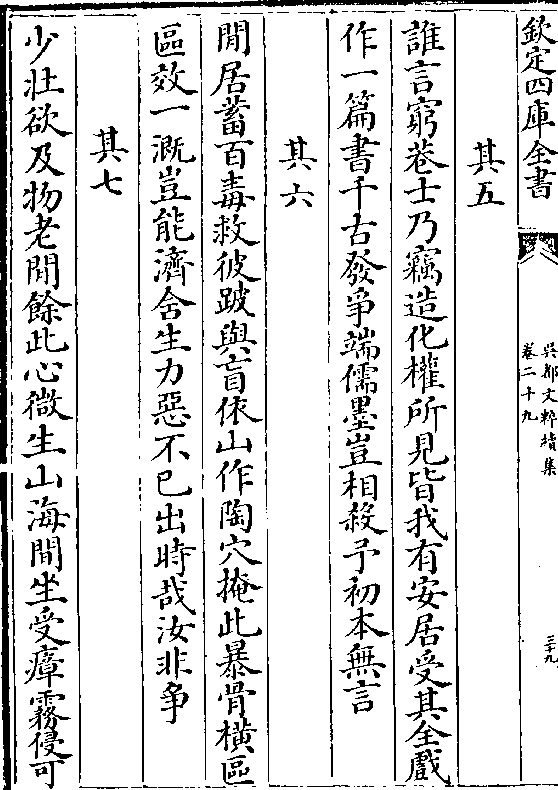 欽定四庫全書
吳都文粹續集
卷二十九
三十九
其五
誰言窮巷士乃竊造化權所見皆我有安居受其全戲
作一篇書千古發爭端儒墨豈相殺予初本無言
其六
閒居蓄百毒救彼跛與盲依山作陶穴掩此暴骨橫區
區效一溉豈能濟含生力惡不已出時哉汝非争
其七
少壯欲及物老閒餘此心微生山海間坐受瘴霧侵可